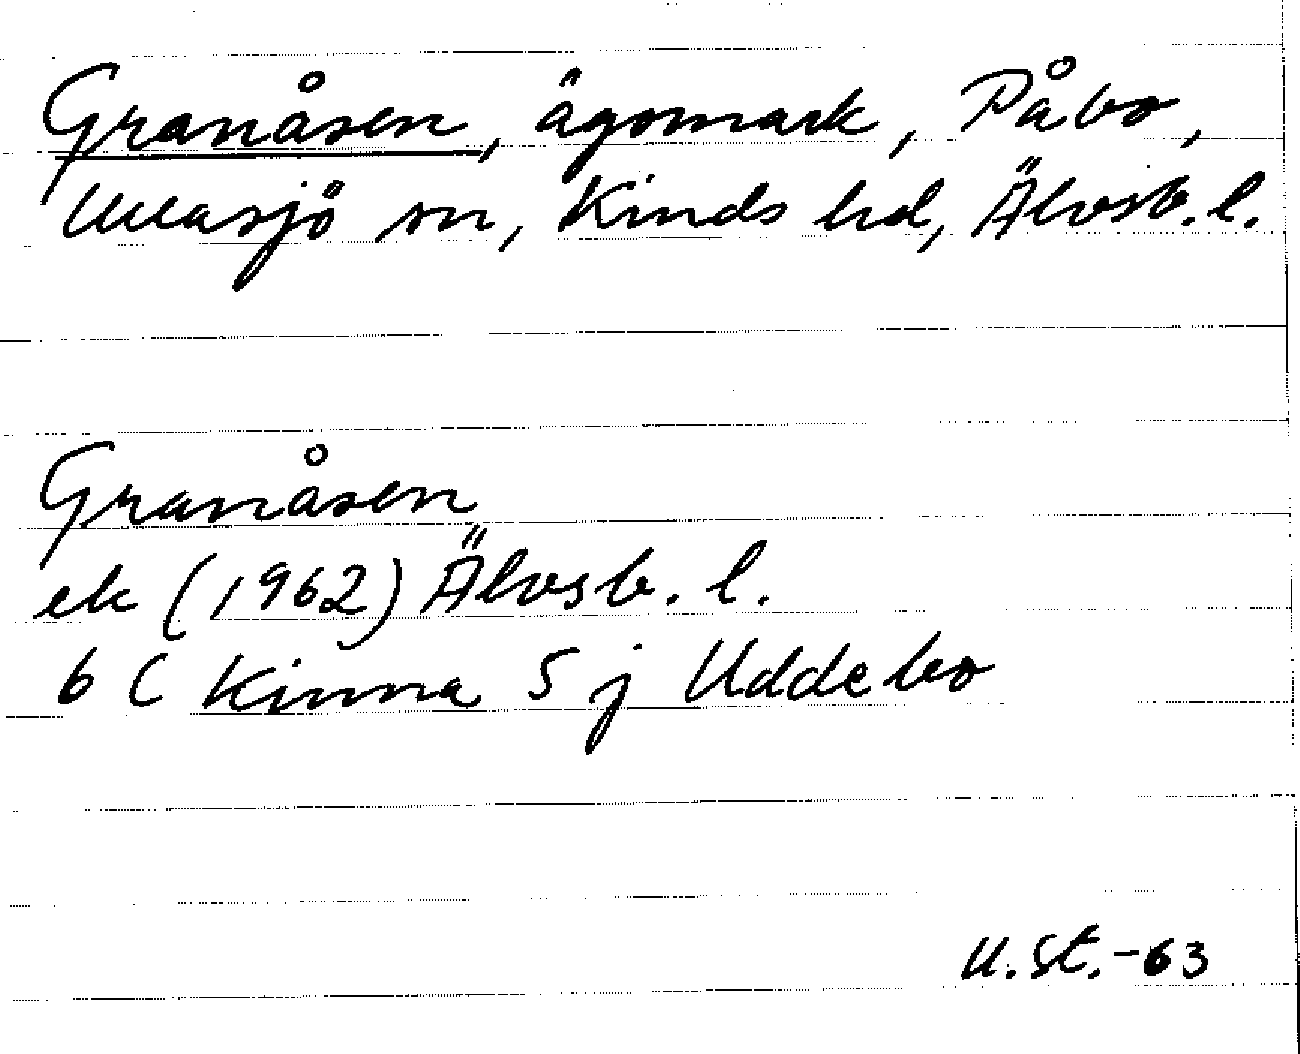 Granåsen, ägomark, Påbo,
Ullasjö sn, Kinds hd, Älvsb. l.
Granåsen
ek (1962) Älvsb. l.
6 C Kinna 5 j Uddebo
U. St. -63